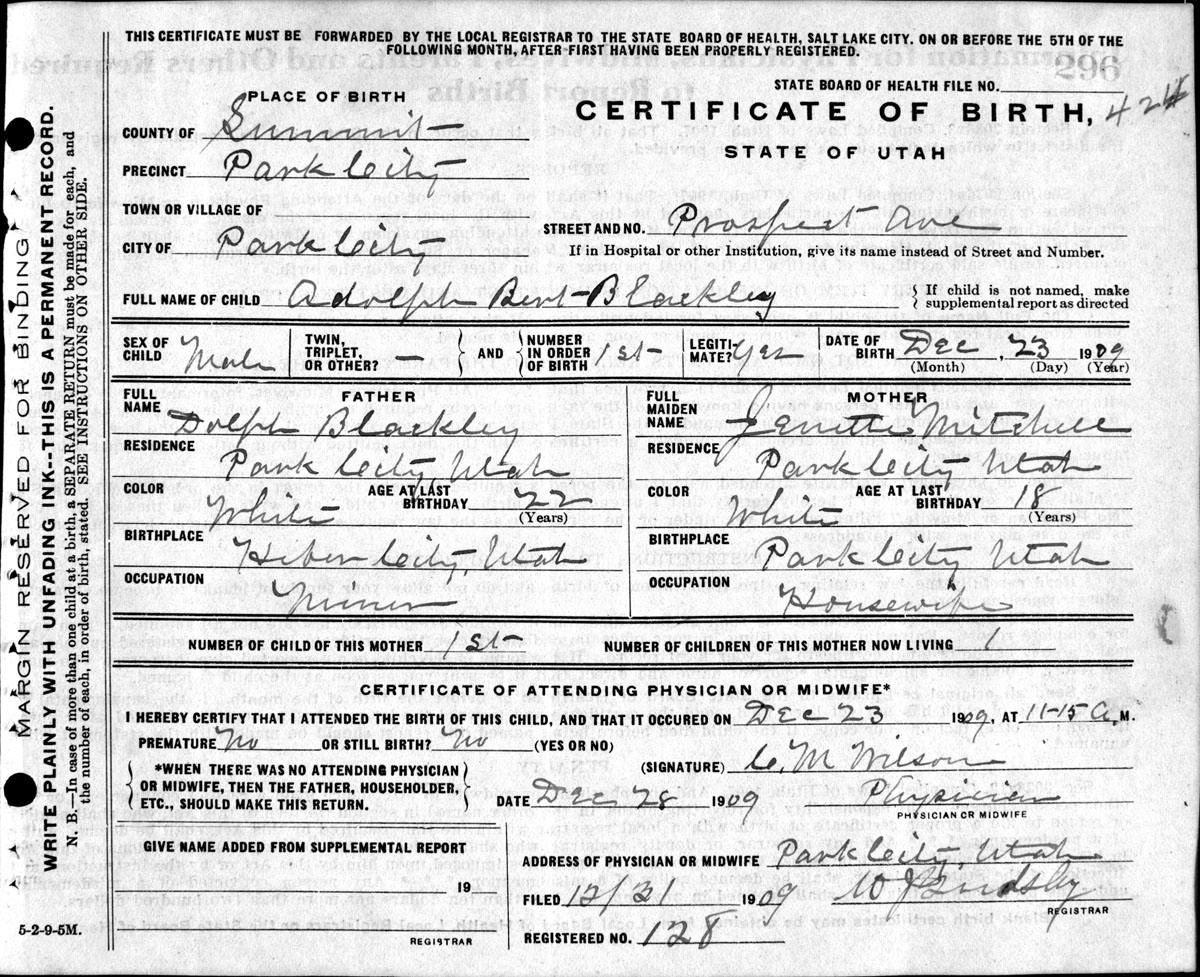 THIS CERTIFICATE MUST BE FORWARDED BY THE LOCAL REGISTRAR TO THE STATE BOARD OF HEALTH, SALT LAKE CITY, ON OR BEFORE THE 5TH OF THE
FOLLOWING MONTH, AFTER FIRST HAVING BEEN PROPERLY REGISTERED.
296
STATE BOARD OF HEALTH FILE NO.
PLACE OF BIRTH
CERTIFICATE OF BIRTH, 424
STATE OF UTAH
COUNTY OF Summit
PRECINCT Park City
TOWN OR VILLAGE OF
STREET AND NO. Prospect Ave
CITY OF Park City
If in Hospital or other Institution, give its name instead of Street and Number.
FULL NAME OF CHILD Adolph Bert Blackley
{ If child is not named, make
supplemental report as directed
SEX OF CHILD Male
TWIN, TRIPLET, OR OTHER? —
AND
NUMBER IN ORDER OF BIRTH 1st
LEGITI-MATE? Yes
DATE OF BIRTH Dec, 23 1909
(Month) (Day) (Year)
FATHER
FULL NAME Dolph Blackley
RESIDENCE Park City, Utah
COLOR White
AGE AT LAST BIRTHDAY 22 (Years)
BIRTHPLACE Heber City Utah
OCCUPATION Miner
MOTHER
FULL MAIDEN NAME Jenette Mitchell
RESIDENCE Park City Utah
COLOR White
AGE AT LAST BIRTHDAY 18 (Years)
BIRTHPLACE Park City Utah
OCCUPATION Housewife
NUMBER OF CHILD OF THIS MOTHER 1st
NUMBER OF CHILDREN OF THIS MOTHER NOW LIVING 1
CERTIFICATE OF ATTENDING PHYSICIAN OR MIDWIFE*
I HEREBY CERTIFY THAT I ATTENDED THE BIRTH OF THIS CHILD, AND THAT IT OCCURED ON Dec 23 1909, AT 11-15 A. M.
PREMATURE No OR STILL BIRTH? No (YES OR NO)
*WHEN THERE WAS NO ATTENDING PHYSICIAN
OR MIDWIFE, THEN THE FATHER, HOUSEHOLDER,
ETC., SHOULD MAKE THIS RETURN.
(SIGNATURE) C. M Wilson
DATE Dec 28 1909 Physician
PHYSICIAN OR MIDWIFE
GIVE NAME ADDED FROM SUPPLEMENTAL REPORT
19
REGISTRAR
ADDRESS OF PHYSICIAN OR MIDWIFE Park City Utah
FILED 12/31 1909 W J
REGISTRAR
REGISTERED NO. 128
5-2-9-5M.
MARGIN RESERVED FOR BINDING
WRITE PLAINLY WITH UNFADING INK--THIS IS A PERMANENT RECORD.
N. B.—In case of more than one child at a birth, a SEPARATE RETURN must be made for each, and
the number of each, in order of birth, stated. SEE INSTRUCTIONS ON OTHER SIDE.